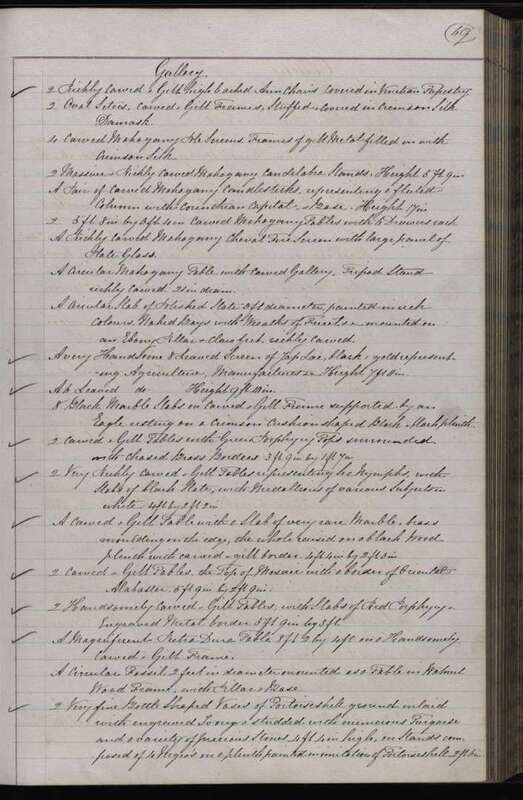 49
Gallery.
2 Richly Carved & Gilt High backed Arm Chairs covered in Venetian Tapestry
2 Oval Settees, carved & Gilt Frames, Stuffed & covered in Crimson Silk
Damask
4 Carved Mahogany Pole Screens Frames of gilt Metal filled in with
Crimson Silk
2 Massive & Richly Carved Mahogany Candelabra Stands Height 5 ft 9 in
A Pair of Carved Mahogany Candlesticks, representing a fluted
Column with Corinthian Capital & Base Height 17 in
2 5 ft 8 in by 3 ft 4 in Carved Mahogany Tables with 6 Drawers each
A Richly Carved Mahogany Cheval Fire Screen with large panel of
Plate Glass.
A Circular Mahogany Table with carved Gallery Tripod Stand
richly carved 2 in diam.
A Circular Slab of Polished Slate 3 ft diameter, painted in rich
colours, Naked Boys with Wreaths of Fruit &c mounted on
an Ebony Pillar & Claw feet richly carved.
A very Handsome 8 Leaved Screen of Jap Lac, black & gold represent
-ing Agriculture, Manufactures &c Height 7 ft
A 6 Leaved do Height 9 ft 10 in
8 Black Marble Slabs on Carved & Gilt Frame supported by an
Eagle resting on a Crimson Cushion shaped Black plinth
2 Carved & Gilt Tables with Green Porphyry Tops surrounded
with Chased Brass Borders 3 ft 9 in by 1 ft 7 in
2 Very Richly Carved & Gilt Tables representing Nymphs with
Slabs of black Slate, with Medallions of various Subjects in
white 4 ft by 2 ft 2 in
A Carved & Gilt Table with a Slab of very rare Marble, brass
moulding on the edge, the whole raised on a black Wood
Plinth with carved & gilt border 4 ft 4 in by 2 ft 3 in
2 Carved & Gilt Tables, the Top of Mosaic with a border of Oriental
Alabaster 5 ft 9 in by 2 ft 9 in
2 Handsomely Carved & Gilt Tables, with Slabs of Red Porphyry &
Engraved Metal border 5 ft 9 in by 3 ft
A Magnificent Pietra Dura Table 8 ft by 4 ft on a Handsomely
Carved & Gilt Frame.
A Circular Fossil 2 feet in diameter mounted as a Table in Walnut
Wood Frame, with Pillar & Base
2 Very fine Bottle Shaped Vases of Tortoiseshell ground inlaid
with engraved Ivory & studded with numerous Turquoise
and a variety of precious Stones 4 ft 4 in high, on Stands com
posed of 4 Negros on a plinth painted in imitation of Tortoiseshell 2 ft